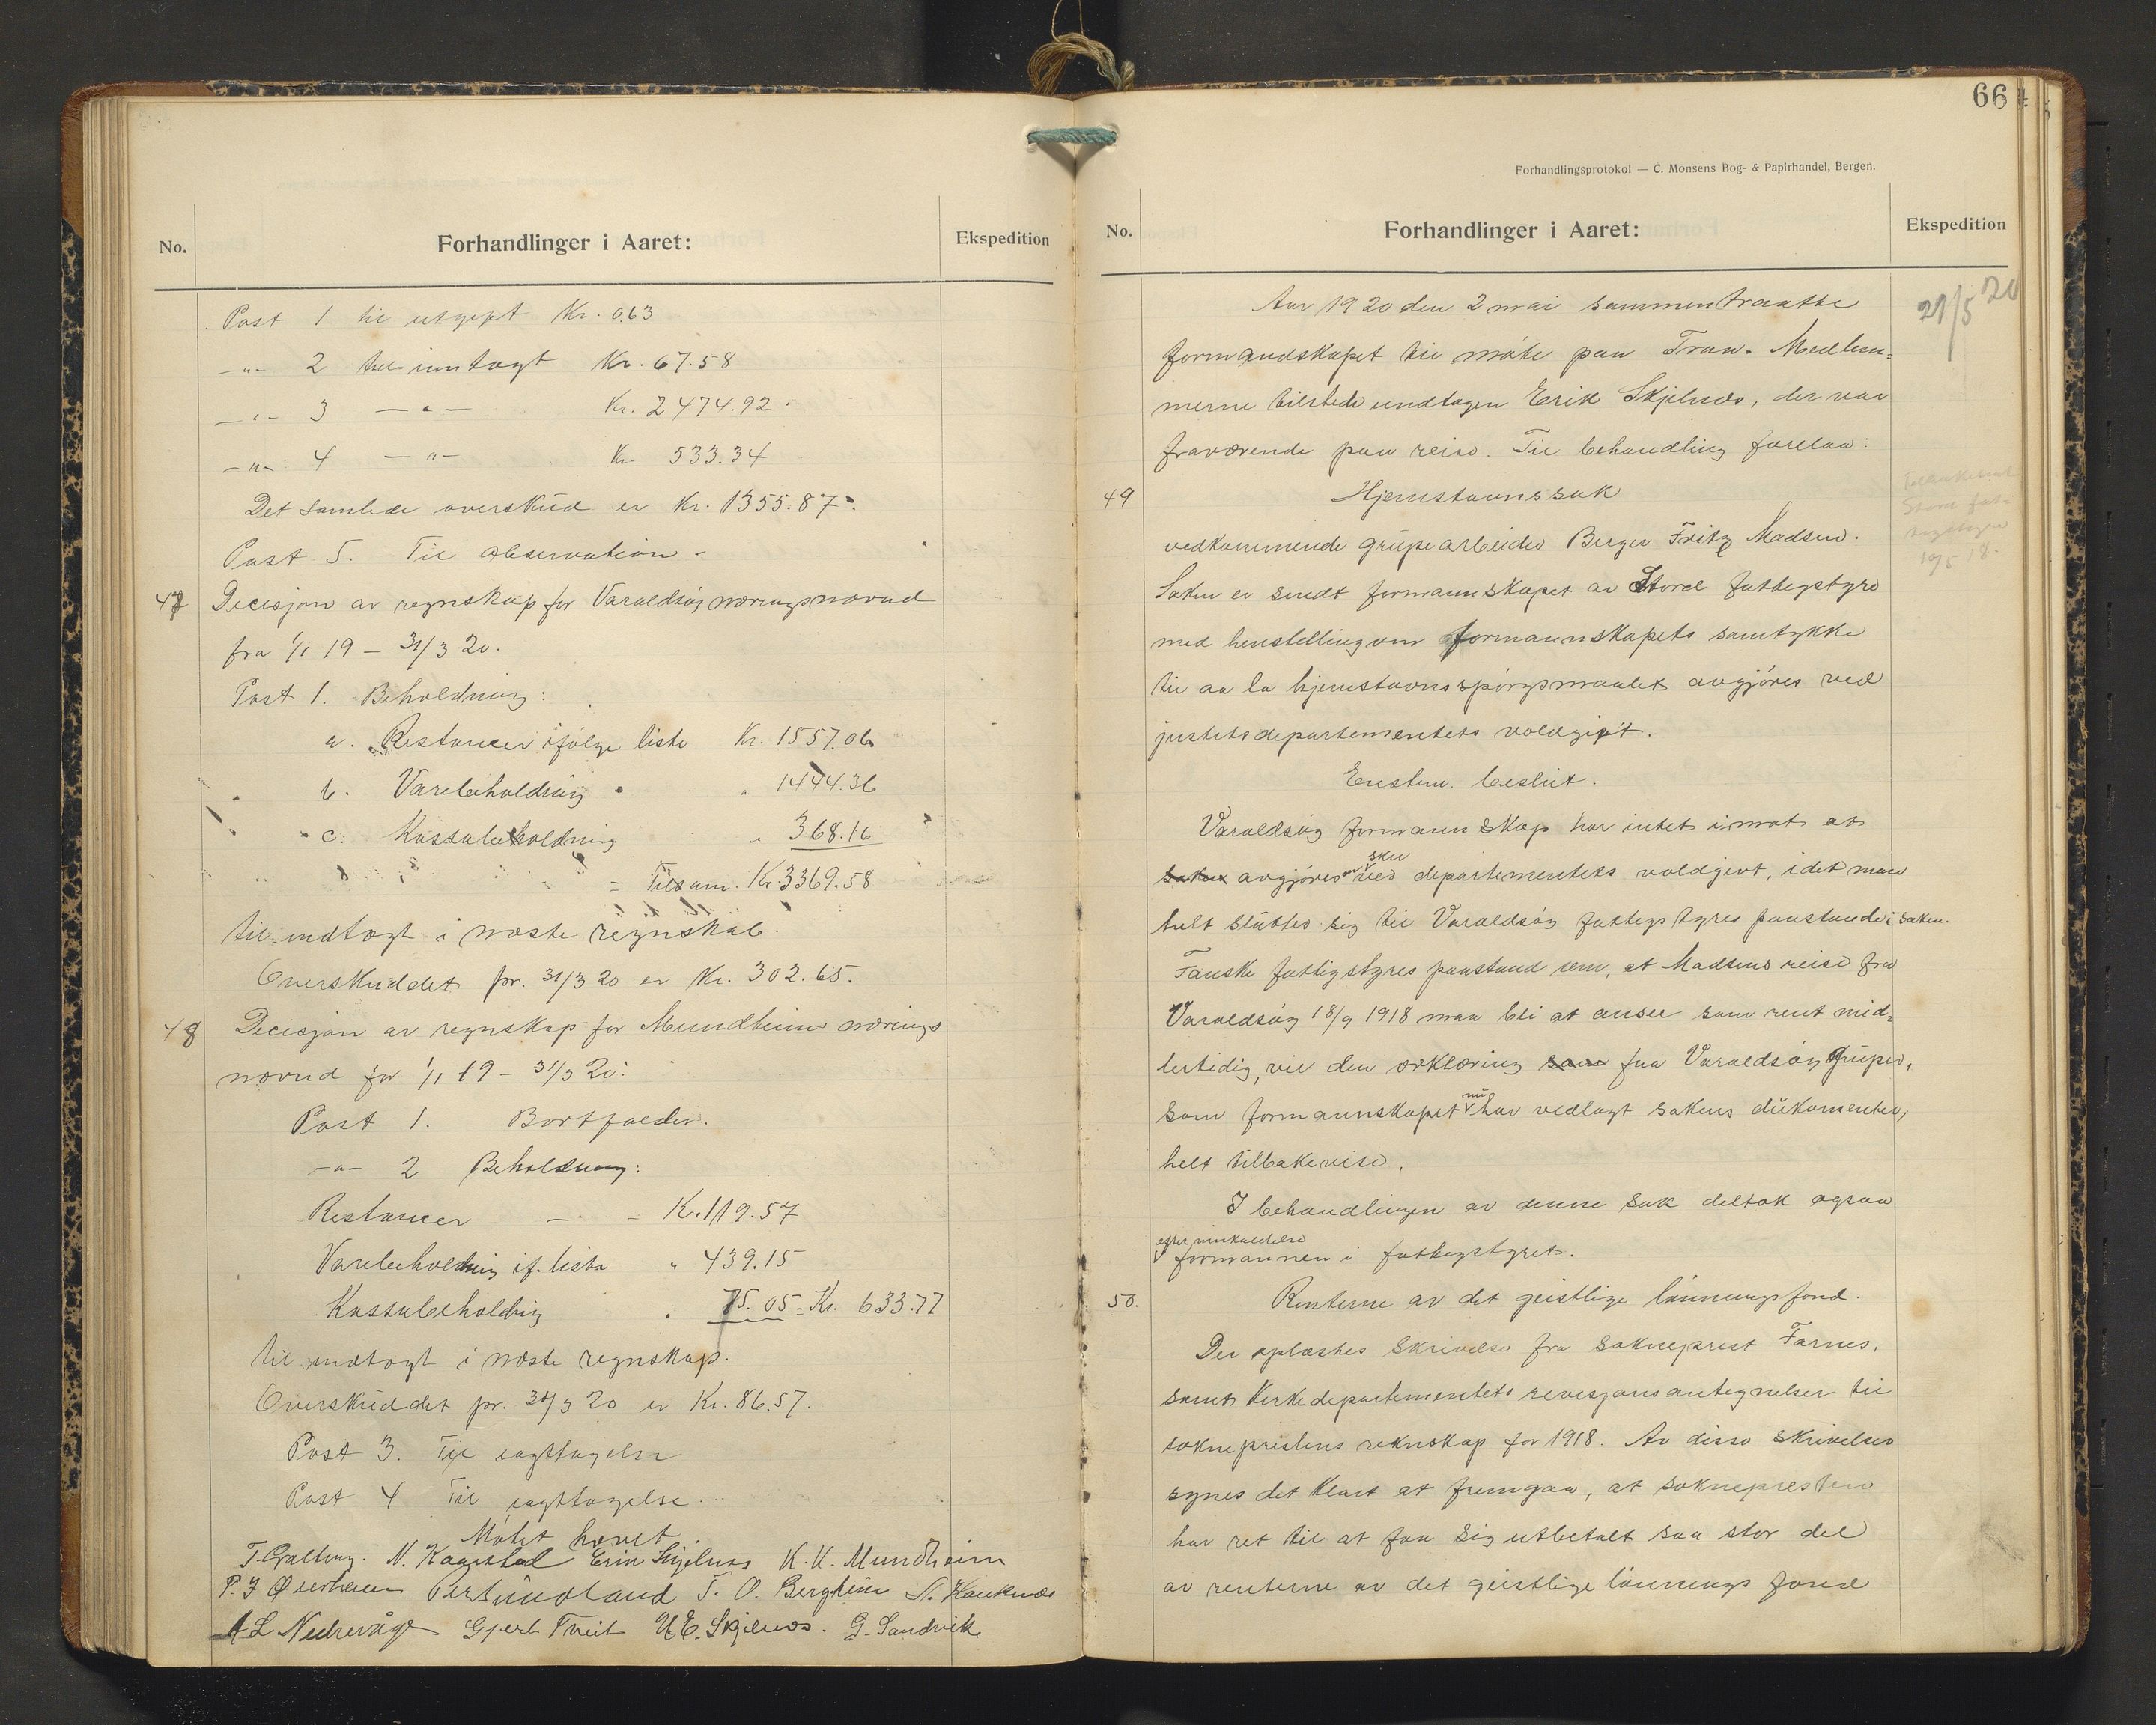 No.
Forhandlinger i Aaret:
Ekspedition
Post 1 til utgift Kr. 0.63
-"- 2 til inntægt Kr. 67.58
-"- 3 -"- Kr. 2474.92
-"- 4 -"- Kr. 533.34
Det samlede overskud er Kr. 1355.87.
Post 5. Til observation -
47 Decisjon av regnskap for Varaldsøy næringsnævnd
fra 1/1 19 - 31/3 20.
Post 1. Beholdning:
a. Restancer ifølge liste Kr. 1557.06
b. Varebeholdning " 1444.36
c. Kassabeholdning " 368.16
= Tilsam. Kr. 3369.58
til indtægt i næste regnskab.
Overskuddet pr. 31/3 20 er Kr. 302.65.
48 Decisjon av regnskap for Mundheim nærings
nævnd for 1/1 19 - 31/3 20:
Post 1. Bortfalder.
-"- 2 Beholdning:
Restancer - - Kr. 119.57
Varebeholdning if. liste " 439.15
Kassabeholdning " 75.05 = Kr. 633.77
til indtægt i næste regnskap.
Overskuddet pr. 31/3 20 er Kr. 86.57.
Post 3. Til iagttagelse
Post 4 Til iagttagelse.
Møtet hævet.
T. Galtung. N. Kaarstad Erik Skjelnæs K. K. Mundheim
P. J. Øierhavn Per Sundland T. O. Berghim N. Hauknæs
A L Nedrevåge Gjert Tveit U E. Skjelnæs. G. Sandvik
66
Forhandlingsprotokol — C. Monsens Bog- & Papirhandel, Bergen.
No.
Forhandlinger i Aaret:
Ekspedition
Aar 1920 den 2 mai sammentraatte
formandskapet til møte paa Traa. Medlem=
merne tilstede undtagen Erik Skjelnæs, der var
fraværende paa reise. Til behandling forelaa:
21/5 20
49 Hjemstavnssak
vedkommende grubearbeider Berger Fritz Madsen.
Saken er sendt formannskapet av Stord fattigstyre
med henstilling om formannskapets samtykke
til aa la hjemstavnsspørgsmaalet avgjøres ved
justitsdepartementets voldgift.
Enstem. beslut.
Varaldsøy formannskap har intet imot at
saken avgjøres ved departementets voldgivt, idet man
helt støtter sig til Varaldsøy fattigstyres paastande i saken.
Fauske fattigstyres paastand om, at Madsens reise fra
Varaldsøy 18/9 1918 maa bli at ansee som rent mid=
lertidig, vil den erklæring som fra Varaldsøy Gruber,
som formannskapet nu har vedlagt sakens dukumenter,
helt tilbakevise.
I behandlingen av denne sak deltok ogsaa
efter innkaldelse
formannen i fattigstyret.
50. Renterne av det geistlige lønningsfond.
Der oplæstes skrivelse fra sokneprest Farnes,
samt Kirkedepartementets revesjonsantegnelser til
sokneprestens reknskap for 1918. Av disse skrivelser
synes det klart at fremgaa, at soknepresten
har ret til at faa sig utbetalt saa stor del
av renterne av det geistlige lønnings fond